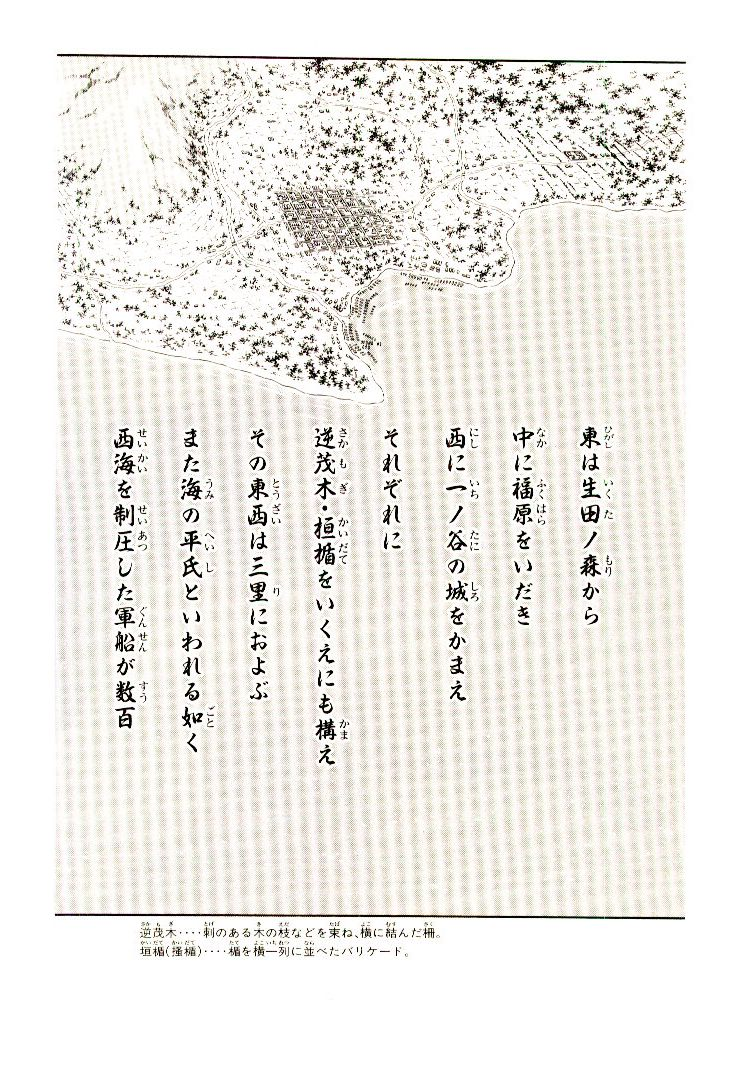 東は生田ノ森から
中に福原をいだき
西に一ノ谷の城をかまえ
それぞれに
逆茂木・垣楯をいくえにも構え
その東西は三里におよぶ
また海の平氏といわれる如く
西海を制圧した軍船が数百
逆茂木‥‥刺のある木の枝などを束ね、横に結んだ柵。
垣楯(掻楯)‥‥楯を横一列に並べたバリケード。